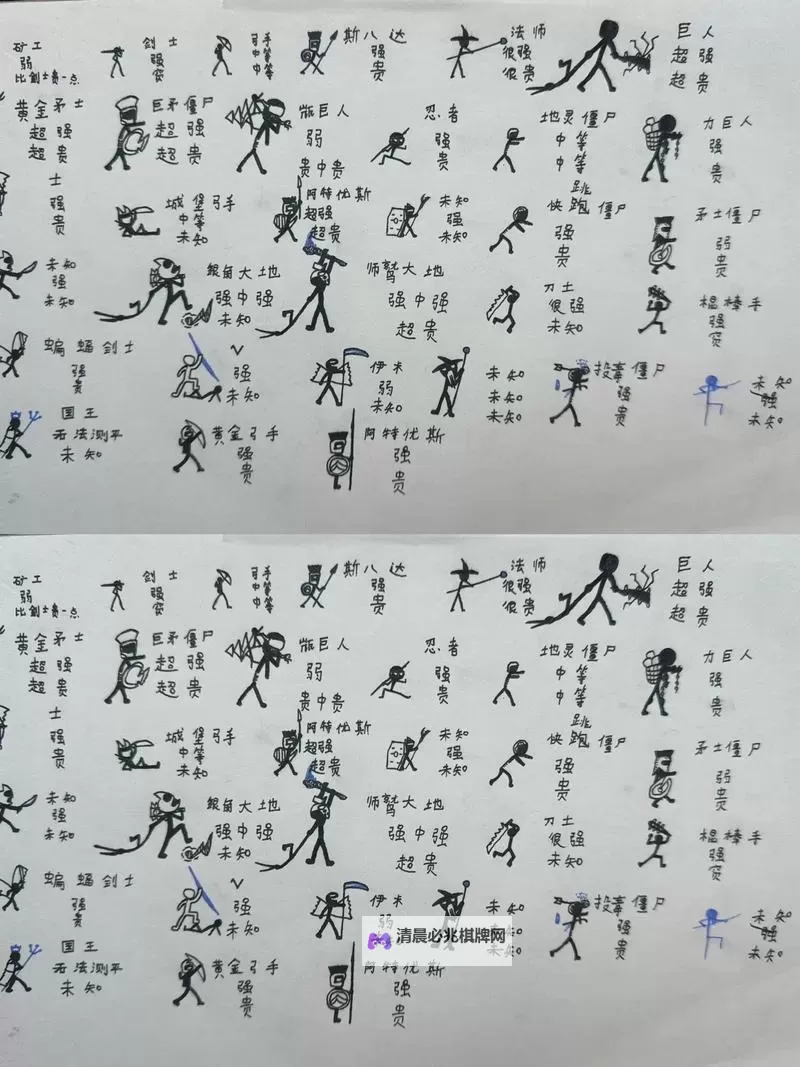 矿工
弱
比剑士贵一点
剑士
强
弓手
中等
中等
斯八达
强
贵
法师
很强
很贵
巨人
超强
超贵
黄金矛士
超强
超贵
巨矛僵尸
超强
超贵
巨人
弱
贵中贵
忍者
强
贵
地灵僵尸
中等
中等
力巨人
强
贵
士
强
贵
城堡弓手
中等
未知
阿特优斯
超强
超贵
未知
强
未知
跳
快跑僵尸
强
贵
矛士僵尸
弱
贵
未知
强
未知
银角大地
强中强
未知
师鹫大地
强中强
超贵
刀士
很强
未知
棍棒手
强
蝙蝠剑士
强
贵
V
强
未知
伊卡
弱
未知
未知
未知
未知
投毒僵尸
强
贵
未知
强
未知
国王
无法测平
未知
黄金弓手
强
贵
阿特优斯
强
贵
矿工
弱
比剑士贵一点
剑士
强
弓手
中等
中等
斯八达
强
贵
法师
很强
很贵
巨人
超强
超贵
黄金矛士
超强
超贵
巨矛僵尸
超强
超贵
巨人
弱
贵中贵
忍者
强
贵
地灵僵尸
中等
中等
力巨人
强
贵
士
强
贵
城堡弓手
中等
未知
阿特优斯
超强
超贵
未知
强
未知
跳
快跑僵尸
强
贵
矛士僵尸
弱
贵
未知
强
未知
银角大地
强中强
未知
师鹫大地
强中强
超贵
刀士
很强
未知
棍棒手
强
蝙蝠剑士
强
贵
V
强
未知
伊卡
弱
未知
未知
未知
投毒僵尸
强
贵
未知
强
未知
清晨必兆棋牌网
国王
无法测平
未知
黄金弓手
强
贵
阿特优斯
强
贵